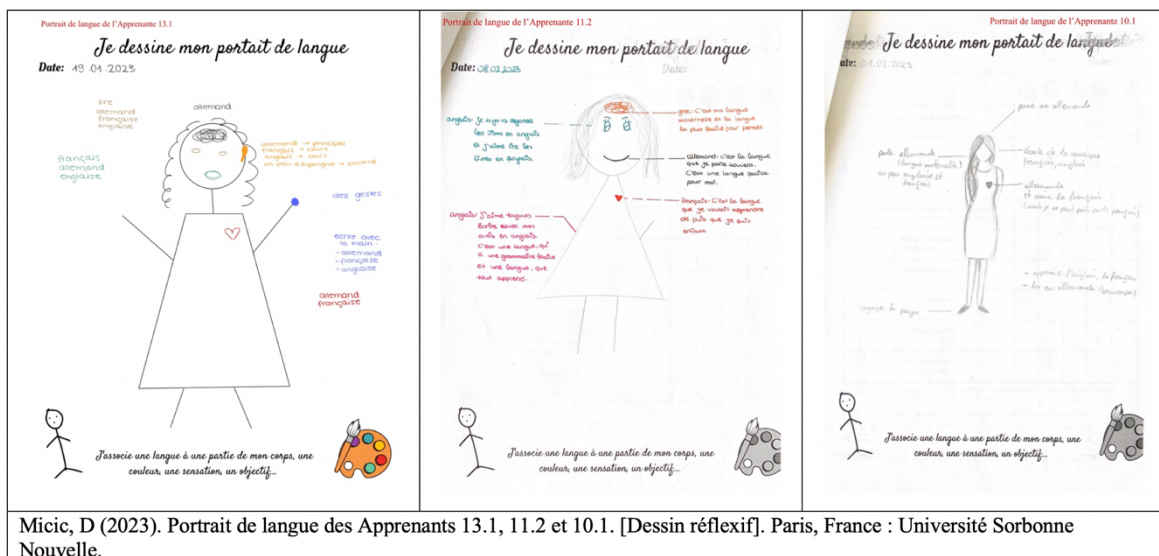 Portrait de langue de l'Apprenante 13.1
Je dessine mon portait de langue
Date: 19 01 2023
lire
allemand
française
englaise
allemand
allemand → principal
français → cours
anglais → cours
français
allemand
englaise
des gestes
ecrire avec
la main
- allemand
- française
- anglaise
allemand
française
J'associe une langue à une partie de mon corps, une
couleur, une sensation, un objectif...
Portrait de langue de l'Apprenante 11.2
Je dessine mon portait de langue
Date: 08.02.2023
Date:
grec: C'est ma langue
maternelle et la langue
la plus facile pour penser.
anglais: Je toujours regarde
les films en anglais
et j'aime lire les
livres en anglais.
allemand: c'est la langue
que je parle souvent.
C'est une langue facile
pour moi.
français: C'est la langue
que je voulais apprendre
de puis que je suis
enfant.
anglais: J'aime toujours
écrire avec mes
amis en anglais.
C'est une langue, qui
a une grammaire facile
et une langue, que
tout apprend.
J'associe une langue à une partie de mon corps, une
couleur, une sensation, un objectif...
Portrait de langue de l'Apprenante 10.1
Je dessine mon portait de langue
ate: 01.02.2023
allemande
parle allemande
(langue maternelle)
un peu anglaise et
français
français, anglais
allemande
et aime la française
- apprends l'anglais, la français
- lis en allemande (beaucoup)
voyage à pays
J'associe une langue à une partie de mon corps, une
couleur, une sensation, un objectif...
Micic, D (2023). Portrait de langue des Apprenants 13.1, 11.2 et 10.1. [Dessin réflexif]. Paris, France : Université Sorbonne
Nouvelle.